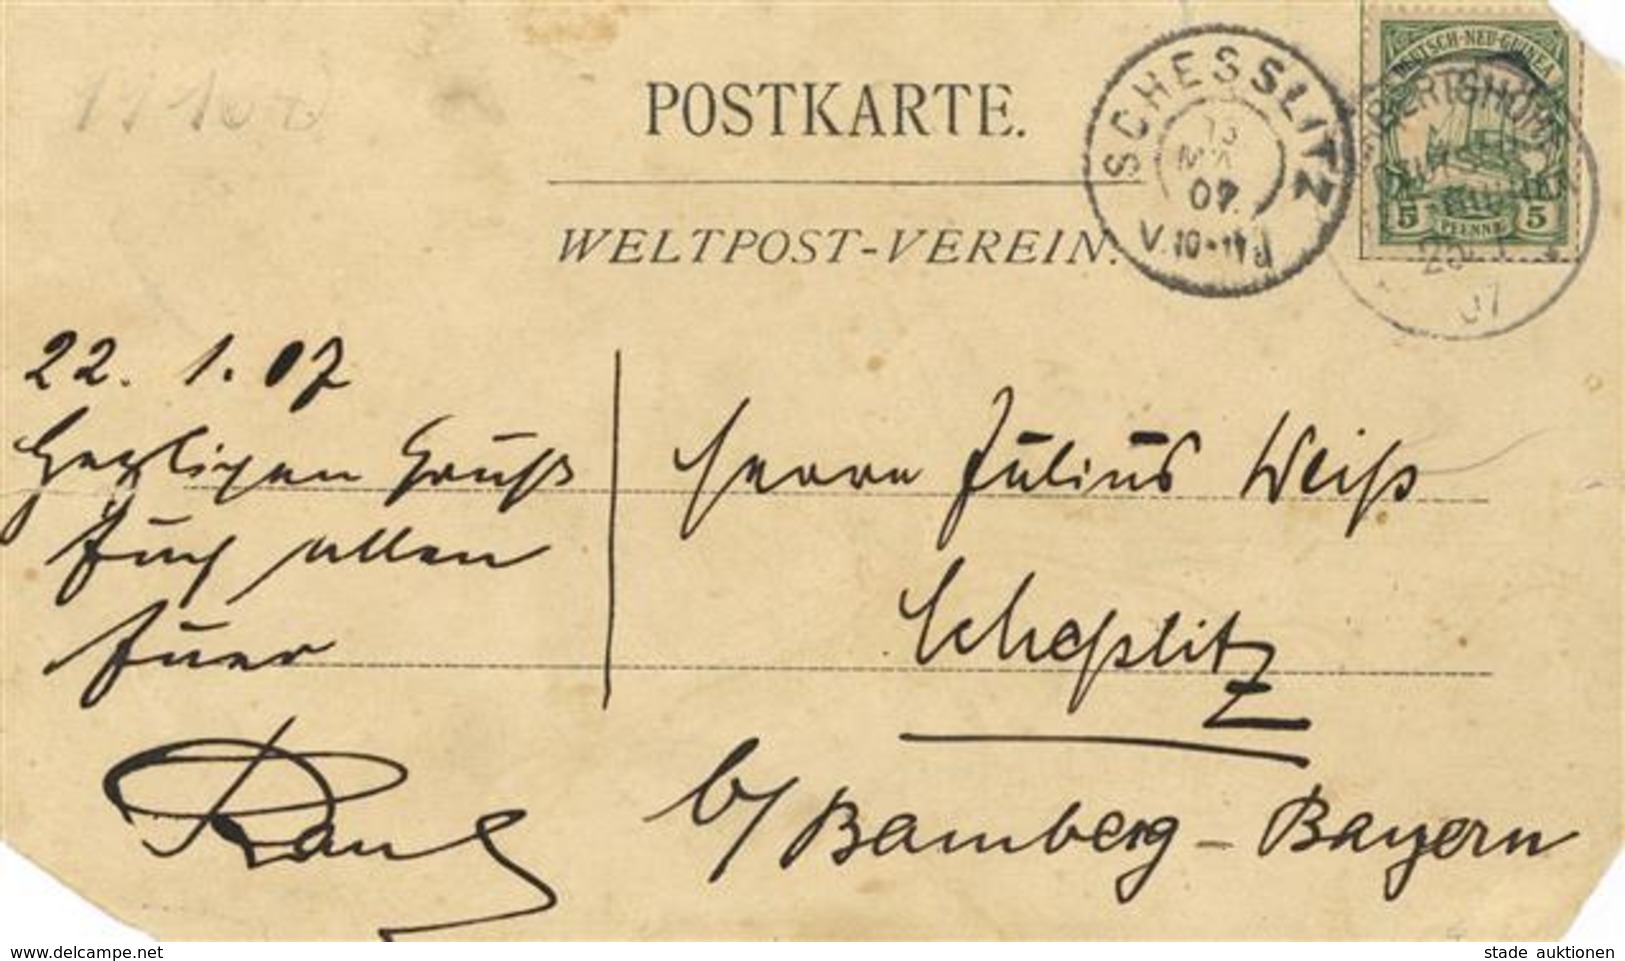 POSTKARTE.
WELTPOST-VEREIN.
SCHESSLITZ
07.
V.10-11
DEUTSCH-NEU-GUINEA
5 PFENNIG 5
07
22. 1. 07
Herzlichen Gruß
Euch allen
Euer
Herrn Julius Weiß
Scheßlitz
b/ Bamberg - Bayern
www.delcampe.net
stade auktionen